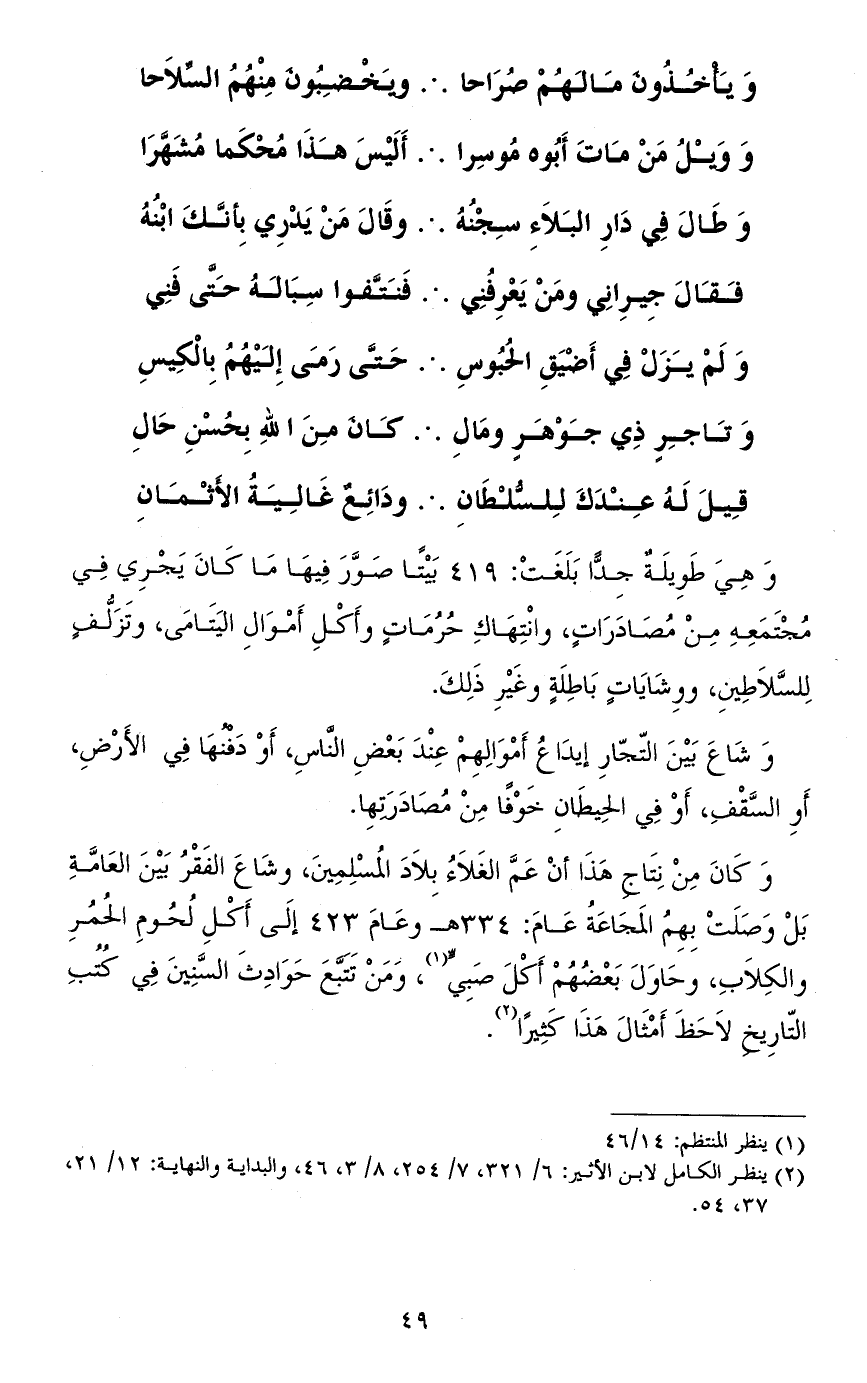 وَ يَأْخُـذُونَ مَـالَـهُمْ صُرَاحا .·. ويَـخْـضِـبُونَ مِنْهُمُ السِّلاَحا
وَ وَيْـلُ مَنْ مـَاتَ أَبُوه مُوسِرا .·. أَلَيْسَ هـَـذَا مُحْكَما مُشَهَّرَا
وَ طَـالَ فِي دَارِ البَـلاَءِ سـِجْنُهُ .·. وقَالَ مَنْ يَدْرِي بِأنـَّـكَ ابْنُهُ
فَـقـَالَ جِيرانِي ومَنْ يَعْرِفُنِي .·. فَنَـتَّـفـوا سِبَالَـهُ حَتَّى فَنِي
وَ لَمْ يـَزَلْ فِي أَضْيَقِ الحُبُوسِ .·. حَـتـَّى رَمَى إلَيْهُمُ بِالْكِيسِ
وَ تـَاجـِرٍ ذِي جـَوْهـَرٍ ومَالِ .·. كـَـانَ مـِنَ اللهِ بِحُسْنِ حَالِ
قِيـلَ لَهُ عِـنْـدَكَ لِلـسُّلْطَانِ .·. ودَائِـعٌ غَـالِـيَـةُ الأَثْـمـَانِ
وَ هِيَ طَوِيلَةٌ جِدًّا بَلَغَتْ: ٤١٩ بَيْتًا صَوَّرَ فِيهَا مَا كَانَ يَجْرِي فِي
مُجْتَمَعِهِ مِنْ مُصَادَرَاتٍ، وانْتِهَاكِ حُرُمَاتٍ وأَكْلِ أَمْوَالِ اليَتَامَى، وتَزَلُّفٍ
لِلسَّلاَطِينِ، ووِشَايَاتٍ بَاطِلَةٍ وغَيْرِ ذَلِكَ.
وَ شَاعَ بَيْنَ التّجّارِ إيدَاعُ أَمْوَالِهِمْ عِنْدَ بَعْضِ النَّاسِ، أَوْ دَفْنُهَا فِي الأَرْضِ،
أَوِ السَّقْفِ، أَوْ فِي الحِيطَانِ خَوْفًا مِنْ مُصَادَرَتِها.
وَ كَانَ مِنْ نِتَاجِ هَذَا أنْ عَمَّ الغَلاَءُ بِلاَدَ المُسْلِمِينَ، وشَاعَ الفَقْرُ بَيْنَ العَامَّةِ
بَلْ وَصَلَتْ بِهِمُ المَجَاعَةُ عَـامَ: ٣٣٤هـ وعَـامَ ٤٢٣ إلَـى أَكْـلِ لُحُومِ الحُمُرِ
والكِلاَبِ، وحَاوَلَ بَعْضُهُمْ أَكْلَ صَبِيٍّ(١)، وَمَنْ تَتَبَّعَ حَوَادِثَ السِّنِينَ فِي كُتُبِ
التّارِيخِ لاَحَظَ أَمْثَالَ هَذَا كَثِيرًا(٢).
(١) ينظر المنتظم: ٤٦/١٤
(٢) ينظر الكامل لابن الأثير: ٦/ ٣٢١، ٧/ ٢٥٤، ٨/ ٣، ٤٦، والبداية والنهاية: ١٢/ ٢١،
٣٧، ٥٤.
٤٩